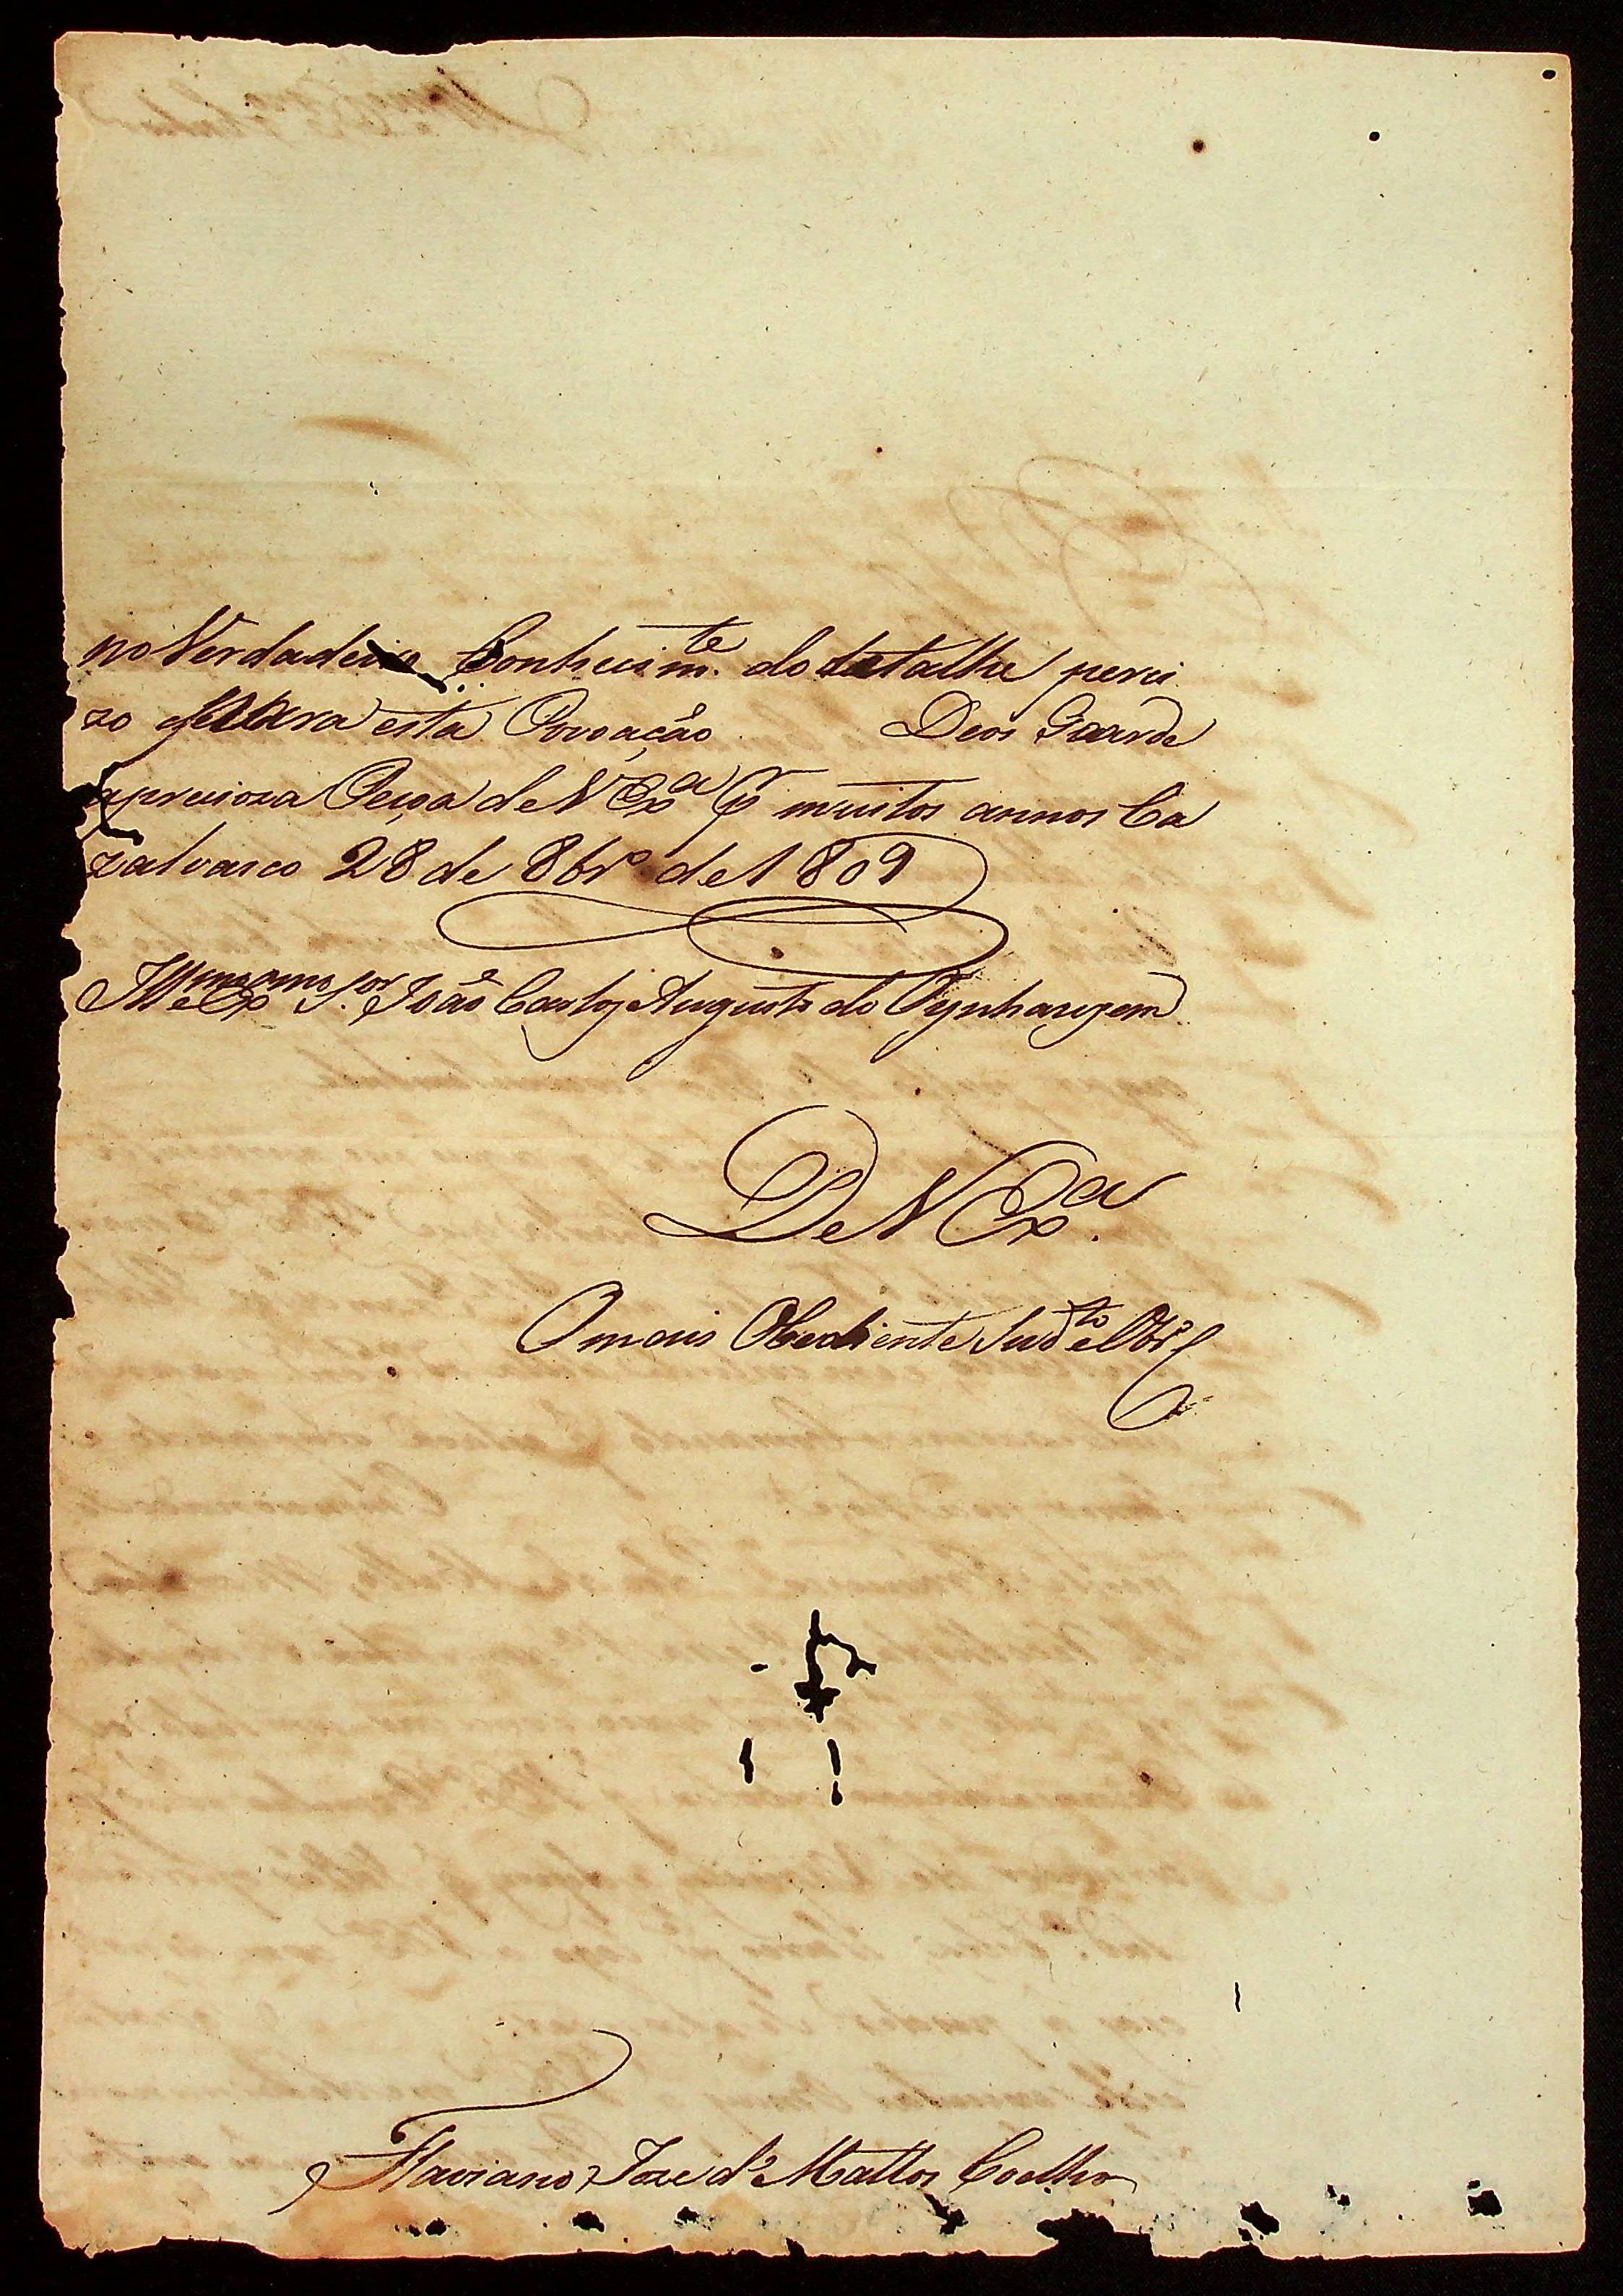 no Verdadeiro Conhecim.te do detalhe perci
zo para esta Povoação Deos Guarde
a precioza Peçoa de V Exa pr muitos annos Ca
zalvasco 28 de 8bro de 1809
Illmo e Exmo Sor João Carlos Augusto do Oynhauzem
De V Exa.
O mais Obediente Sudto e Obro
Flaviano Joze d'Mattos Coelho